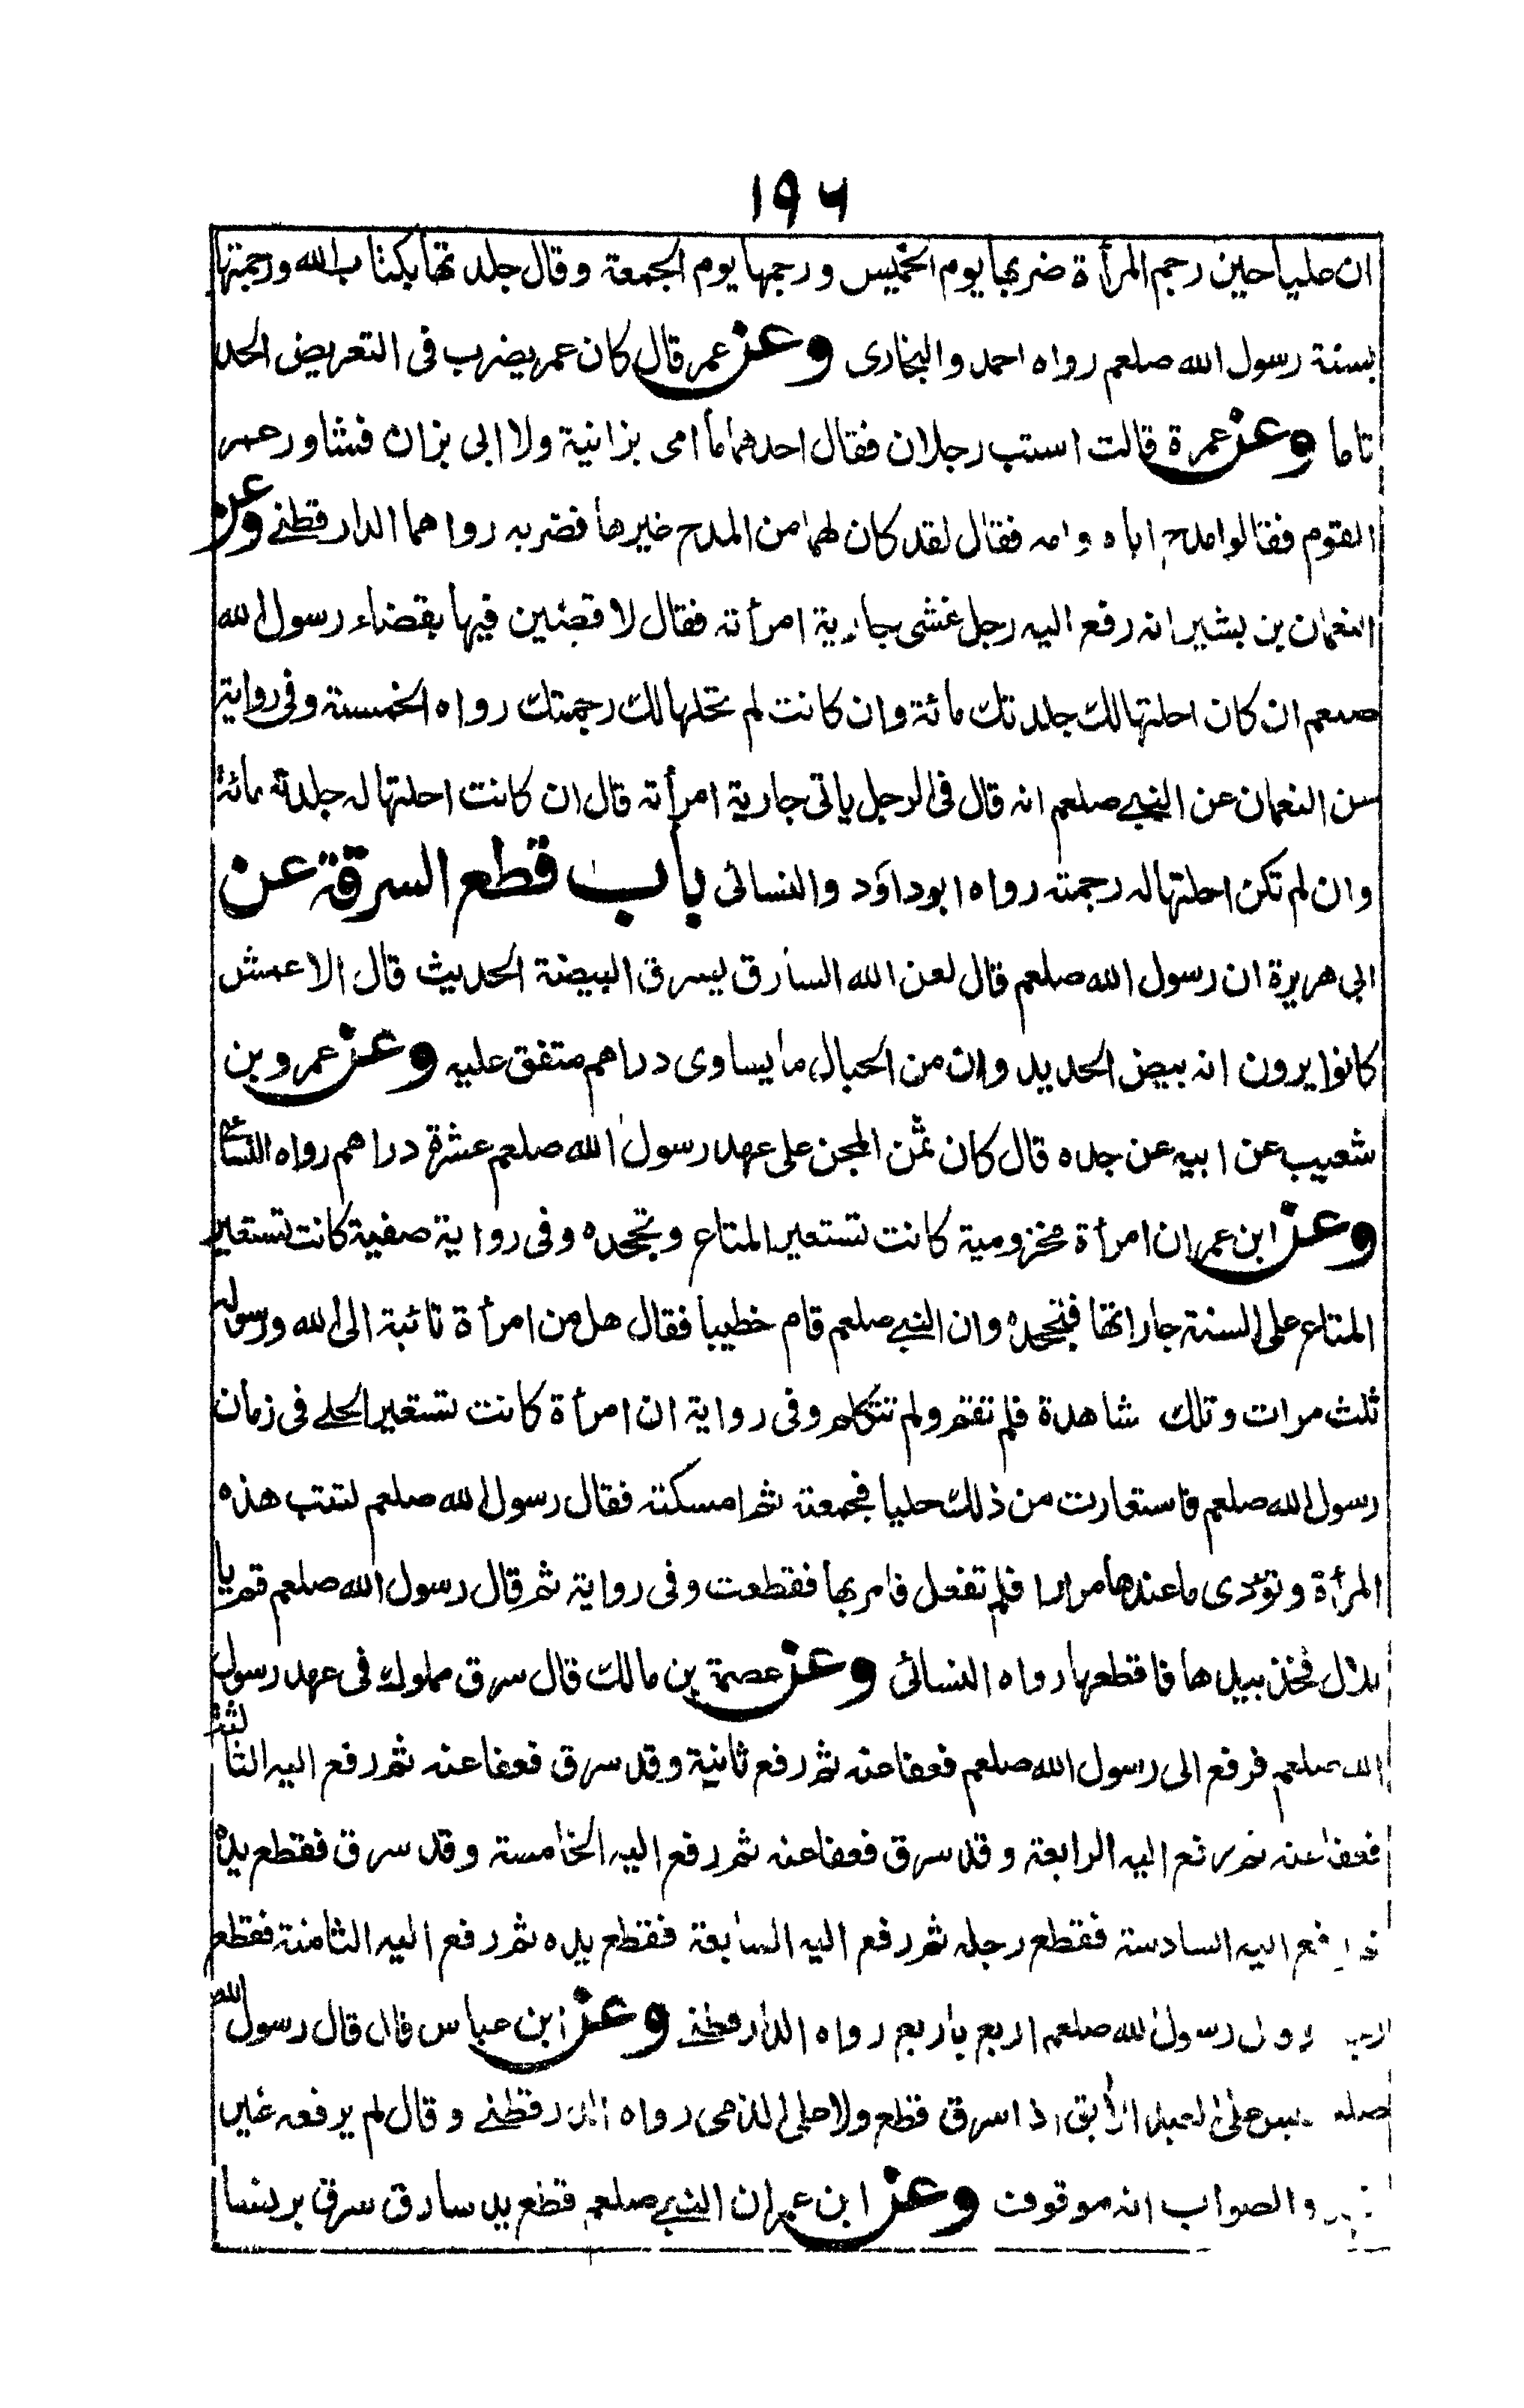 ١٩٦
ان عليا حين رجم المرأة ضربها يوم الخميس ورجمها يوم الجمعة وقال جلدتها بكتاب الله ورجمتها
بسنة رسول الله صلعم رواه احمد والبخارى وعن عمر قال كان عمر يضرب فى التعريض الحد
تاما وعن عمرة قالت استب رجلان فقال احدهما ما امى بزانية ولا ابى بزان فشاور عمر
القوم فقالوا مدح اباه وامه فقال لقد كان لهما من المدح غيرها فضربه رواهما الدارقطنے وعن
النعمان بن بشير انه رفع اليه رجل غشى جارية امرأته فقال لاقضين فيها بقضاء رسول الله
صلعم ان كان احلتها لك جلدتك مائة وان كانت لم تحلها لك رجمتك رواه الخمسة وفى رواية
عن النعمان عن النبے صلعم انه قال فى الرجل ياتى جارية امرأته قال ان كانت احلتها له جلدته مائة
وان لم تكن احلتها له رجمته رواه ابوداؤد والنسائى باب قطع السرقة عن
ابى هريرة ان رسول الله صلعم قال لعن الله السارق يسرق البيضة الحديث قال الاعمش
كانوا يرون انه بيض الحديد وان من الحبال ما يساوى دراهم متفق عليه وعن عمرو بن
شعيب عن ابيه عن جده قال كان ثمن المجن على عهد رسول الله صلعم عشرة دراهم رواه النسائے
وعن ابن عمر ان امرأة مخزومية كانت تستعير المتاع وتجحده وفى رواية صفية كانت تستعير
المتاع على السنة جاراتها فتجحده وان النبے صلعم قام خطيبا فقال هل من امرأة تائبة الى الله ورسوله
ثلث مرات وتلك شاهدة فلم تقم ولم تتكلم وفى رواية ان امرأة كانت تستعير الحلے فى زمان
رسول الله صلعم فاستعارت من ذلك حليا فجمعته ثم امسكته فقال رسول الله صلعم لتتب هذه
المرأة وتؤدى ما عندها مرارا فلم تفعل فامر بها فقطعت وفى رواية ثم قال رسول الله صلعم قم يا
بلال فخذ بيدها فاقطعها رواه النسائى وعن عصمة بن مالك قال سرق مملوك فى عهد رسول
الله صلعم فرفع الى رسول الله صلعم فعفا عنه ثم رفع ثانية وقد سرق فعفا عنه ثم رفع اليه الثالثة
فعفا عنه ثم رفع اليه الرابعة وقد سرق فعفا عنه ثم رفع اليه الخامسة وقد سرق فقطع يده
ثم رفع اليه السادسة فقطع رجله ثم رفع اليه السابعة فقطع يده ثم رفع اليه الثامنة فقطع
رسول الله صلعم اربع باربع رواه الدارقطنے وعن ابن عباس قال قال رسول الله
على العبد الآبق اذا سرق قطع ولا على الذمى رواه الدارقطنے وقال لم يرفعه غير
والصواب انه موقوف وعن ابن عمر ان النبے صلعم قطع يد سارق سرق برنسا